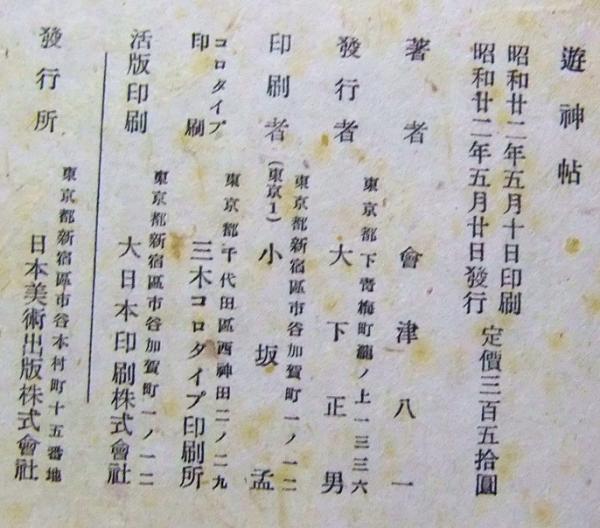 遊神帖
昭和廿二年五月十日印刷
昭和廿二年五月廿日發行 定價三百五拾圓
著者 會津八一
東京都下靑梅町瀧ノ上一三三六
發行者 大下正男
東京都新宿區市谷加賀町一ノ一二
印刷者 (東京1) 小坂孟
東京都千代田區西神田二ノ二九
コロタイプ印刷 三木コロタイプ印刷所
東京都新宿區市谷加賀町一ノ一二
活版印刷 大日本印刷株式會社
東京都新宿區市谷本村町十五番地
發行所 日本美術出版株式會社